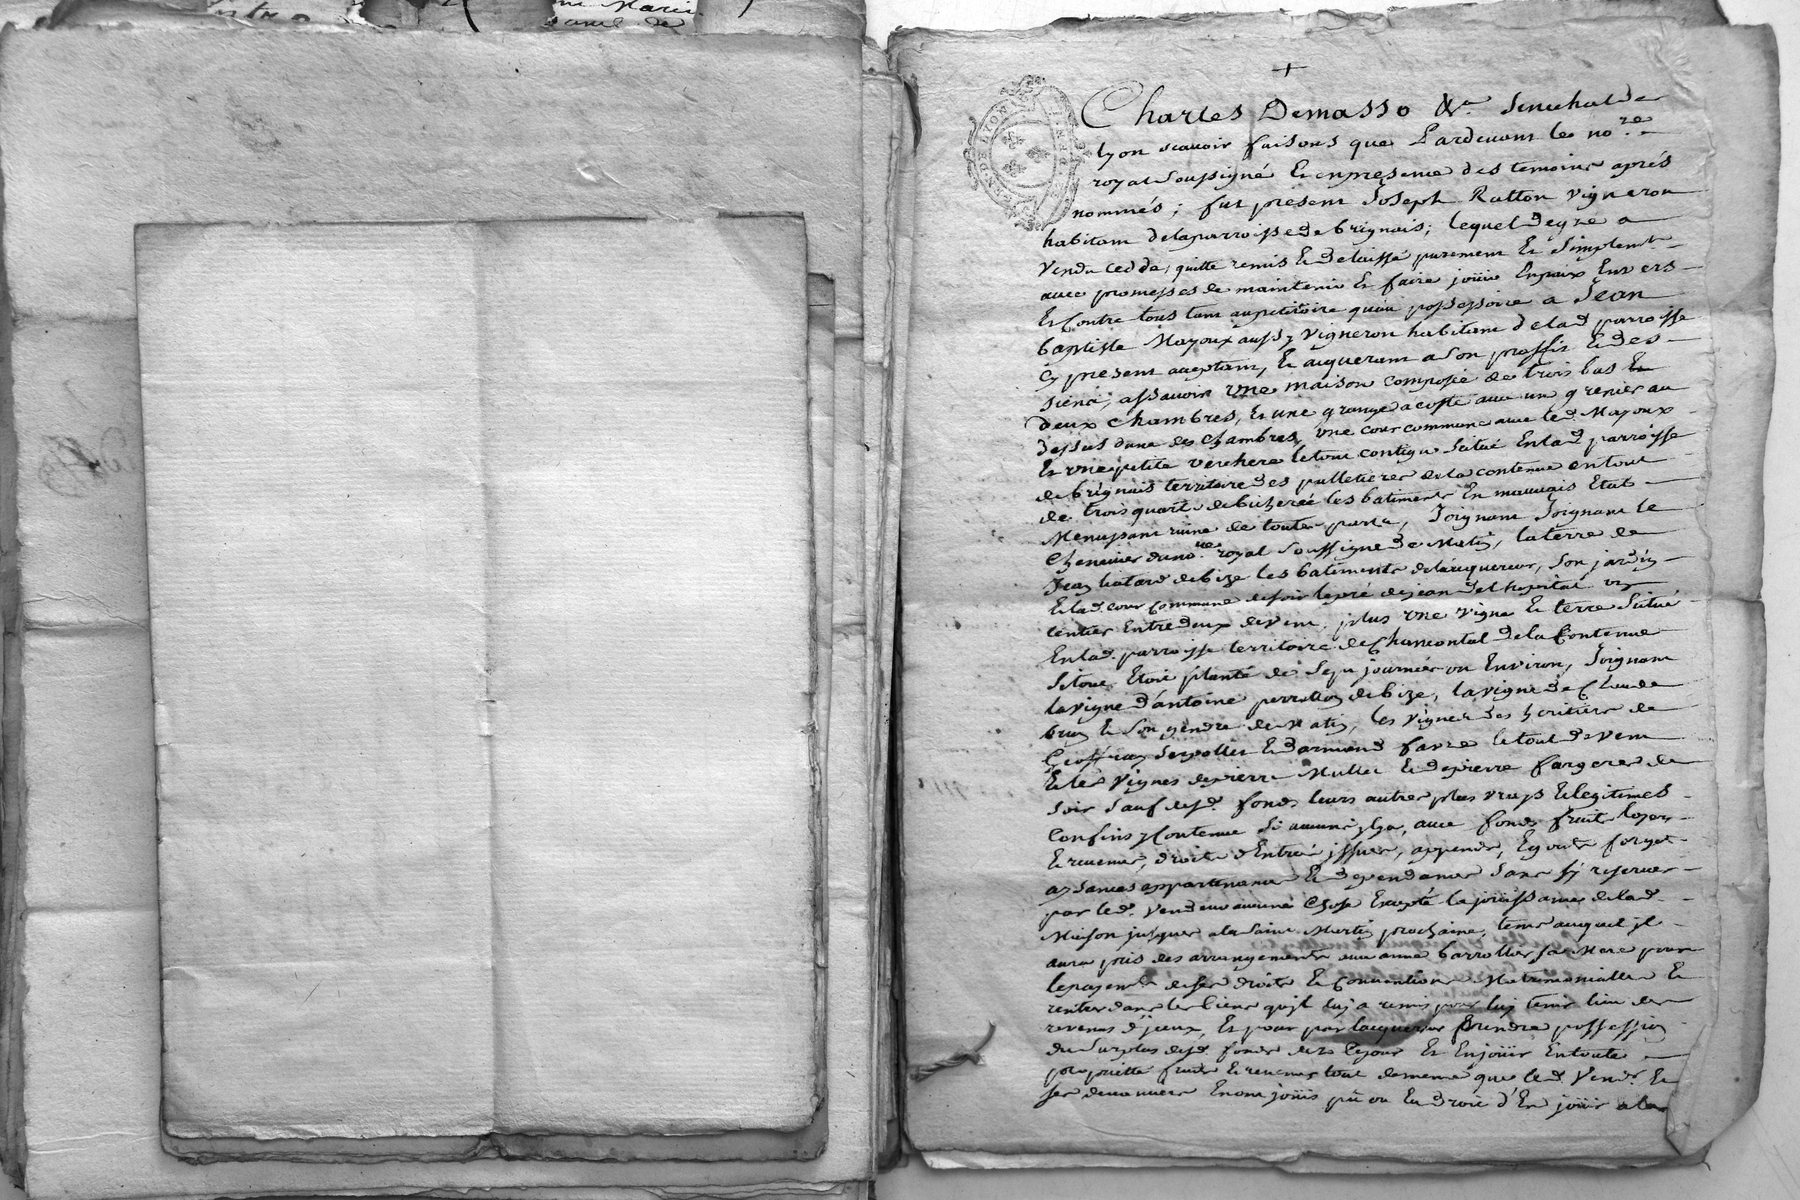 Charles Demasso &.a Senechal de
lyon scavoir faisons que Pardevant le no.re
royal soussigné Et en presence des temoins aprés
nommés; fut present Joseph Ratton vigneron
habitant de la parroisse de brignais; lequel de gre a
vendu ceddé, quitté remis Et delaissé purement Et simplemt
avec promesses de maintenir Et faire joüir En paix Envers
Et Contre tous tant au petitoire qu'au possessoire a Jean
baptiste Mayoux aussy vigneron habitant de lad parroisse
Cy present acceptant, Et aiquerant a son proffit Et des
siens; assavoir une maison composée de trois bas Et
deux chambres, Et une grange a costé avec un grenier au
dessus d'une des chambres, une cour commune avec led Mayoux
Et une petite verchere le tout contigu scitué En lad parroisse
de brignais territoire des pulletieres de la contenue en tout
de trois quart de bicherée les batiments En mauvais Etats
Menassant ruine de toutes parts, Joignant Joignant le
chenevier du no.re royal soussigné de Matin, la terre de
Jean de bize les batiments de l'aiquereur, son jardin
Et lad. cour commune de soir le pré de jean delhospital un
sentier Entre deux de vent, plus une vigne Et terre scitué
En lad. parroisse territoire de Chamontal de la Contenue
Si tout Etoit planté de Sept journées ou Environ, Joignant
la vigne d'antoine de bize, la vigne de Claude
brun Et son gendre de Matin, les vignes des heritiers de
Geoffray Et d'armand favre le tout de vent
Et les vignes de pierre Mullet Et de pierre fargere de
Soir Sauf desd. fonds leurs autres plus vrays Et legitimes
Confins, Contenue Si aucuns y a, avec fonds fruits loyers
Et revenus, droits d'Entrée jssues, appends,
aysances appartenances Et dependances sans s'y reserver
par led. vendeur aucune chose Excepté la joüissance de lad.
Maison jusques a la Saint Martin prochaine, tems auquel jl
aura pris des arrangements avec anne barrollier sa Mere pour
le payemt de ses droits Et Conventions Matrimonialles Et
rentrer dans les biens qu'jl luy a remis pour luy tenir lieu des
revenus d'jceux, Et pour par l'acquereur Prendre possession
du surplus desd. fonds dez le jour Et En joüir En toute
proprieté fruits Et revenus tout de meme que led. vendr. Et
ses devanciers En ont joüis pû ou Eu droit d'En joüir a la